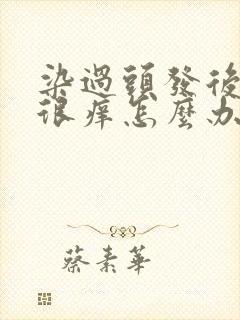 染過頭發後
很癢怎麼办
蔡素華